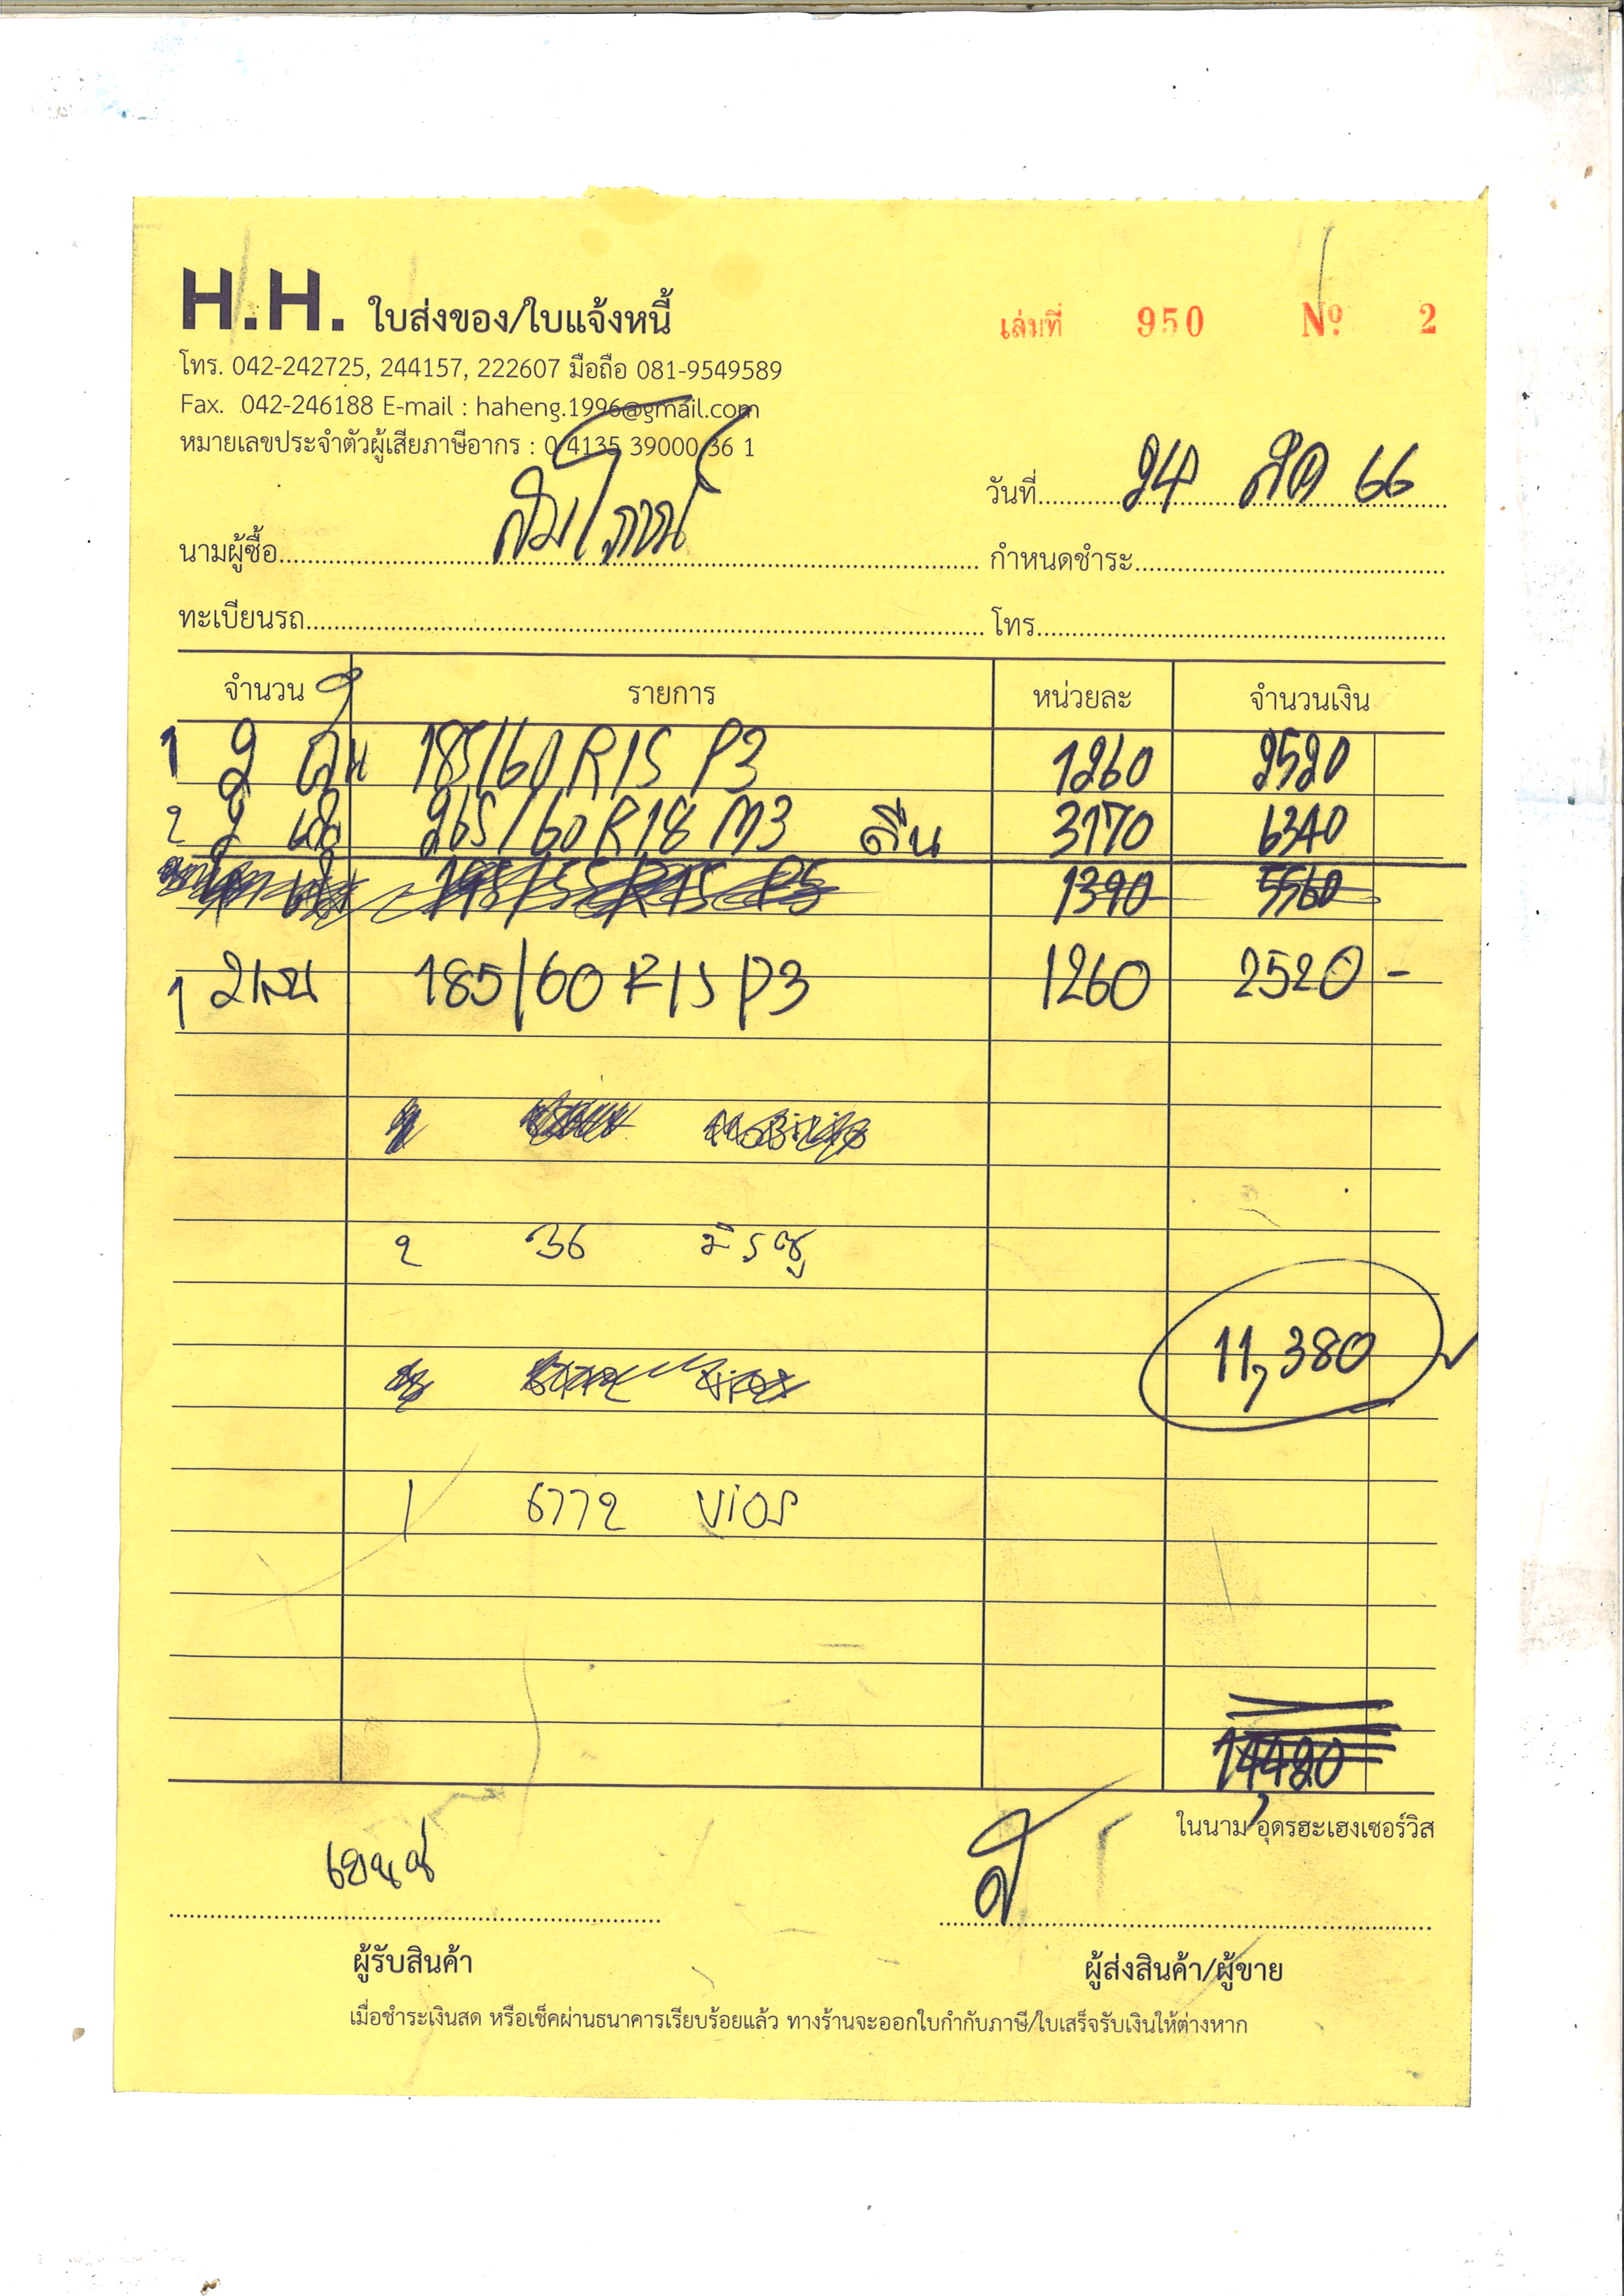 H.H. ใบส่งของ/ใบแจ้งหนี้
เล่มที่ 950 Nº 2
โทร. 042-242725, 244157, 222607 มือถือ 081-9549589
Fax. 042-246188 E-mail : haheng.1996@gmail.com
หมายเลขประจำตัวผู้เสียภาษีอากร : 0 4135 39000 36 1
วันที่ 24 สค 66
นามผู้ซื้อ
กำหนดชำระ
ทะเบียนรถ
โทร
จำนวน รายการ หน่วยละ จำนวนเงิน
1 2 เส้น 185/60 R15 P3 1260 2520
2 2 เส้น 265/60 R18 M3 คืน 3170 6340
195/55 R15 P3 1390 5560
1 2 เส้น 185/60 R15 P3 1260 2520 -
2 36 มิรซู
11,380
1 6772 vios
14,420
ในนาม อุดรฮะเฮงเซอร์วิส
ผู้รับสินค้า
ผู้ส่งสินค้า/ผู้ขาย
เมื่อชำระเงินสด หรือเช็คผ่านธนาคารเรียบร้อยแล้ว ทางร้านจะออกใบกำกับภาษี/ใบเสร็จรับเงินให้ต่างหาก